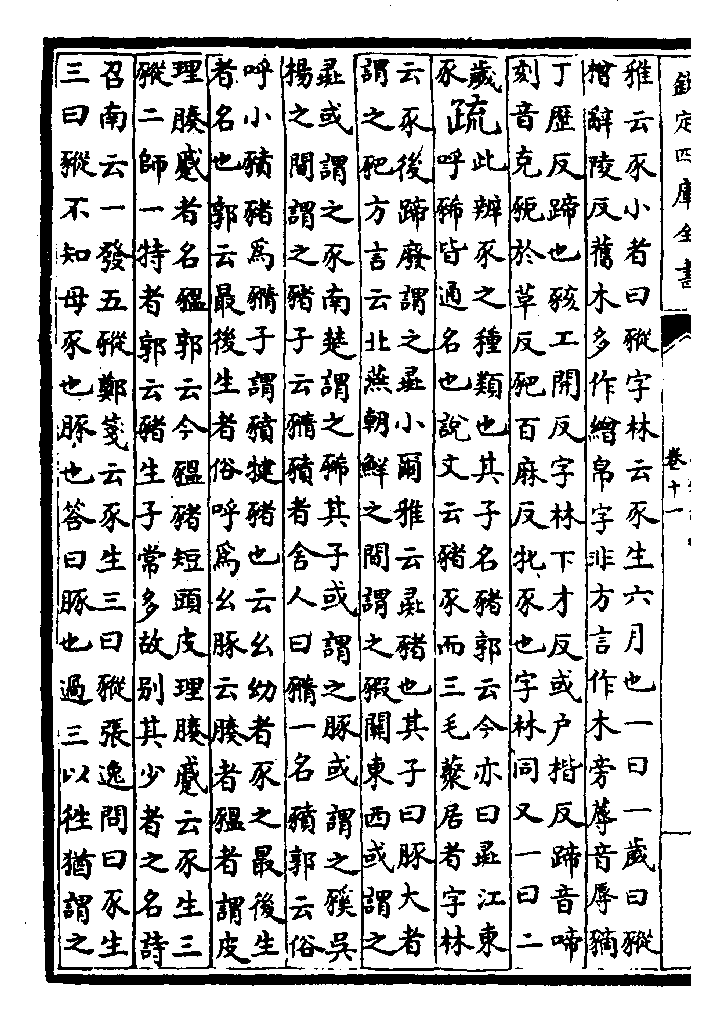 欽定四庫全書
卷十一
雅云豕小者曰豵字林云豕生六月也一曰一歲曰豵
橧辭陵反舊木多作繒帛字非方言作木旁蓐音辱豴
丁歷反蹄也豥工開反字林下才反或户揩反蹄音啼
刻音克豟於草反豝百麻反牝豕也字林同又一曰二
歲疏此辨豕之種類也其子名豬郭云今亦曰彘江東
豕呼豨皆通名也說文云豬豕而三毛藂居者字林
云豕後蹄廢謂之彘小爾雅云彘豬也其子曰豚大者
謂之豝方言云北燕朝鮮之間謂之豭關東西或謂之
彘或謂之豕南楚謂之豨其子或謂之豚或謂之豯吳
揚之間謂之豬子云豶豬者舍人曰豶一名豶郭云俗
呼小豶豬爲豶子謂豶犍豬也云幺幼者豕之最後生
者名也郭云最後生者俗呼爲幺豚云腠者豱者謂皮
理腠蹙者名豱郭云今豱豬短頭皮理腠蹙云豕生三
豵二師一特者郭云豬生子常多故别其少者之名詩
召南云一發五豵鄭箋云豕生三曰豵張逸問曰豕生
三曰豵不知母豕也豚也答曰豚也過三以徃猶謂之